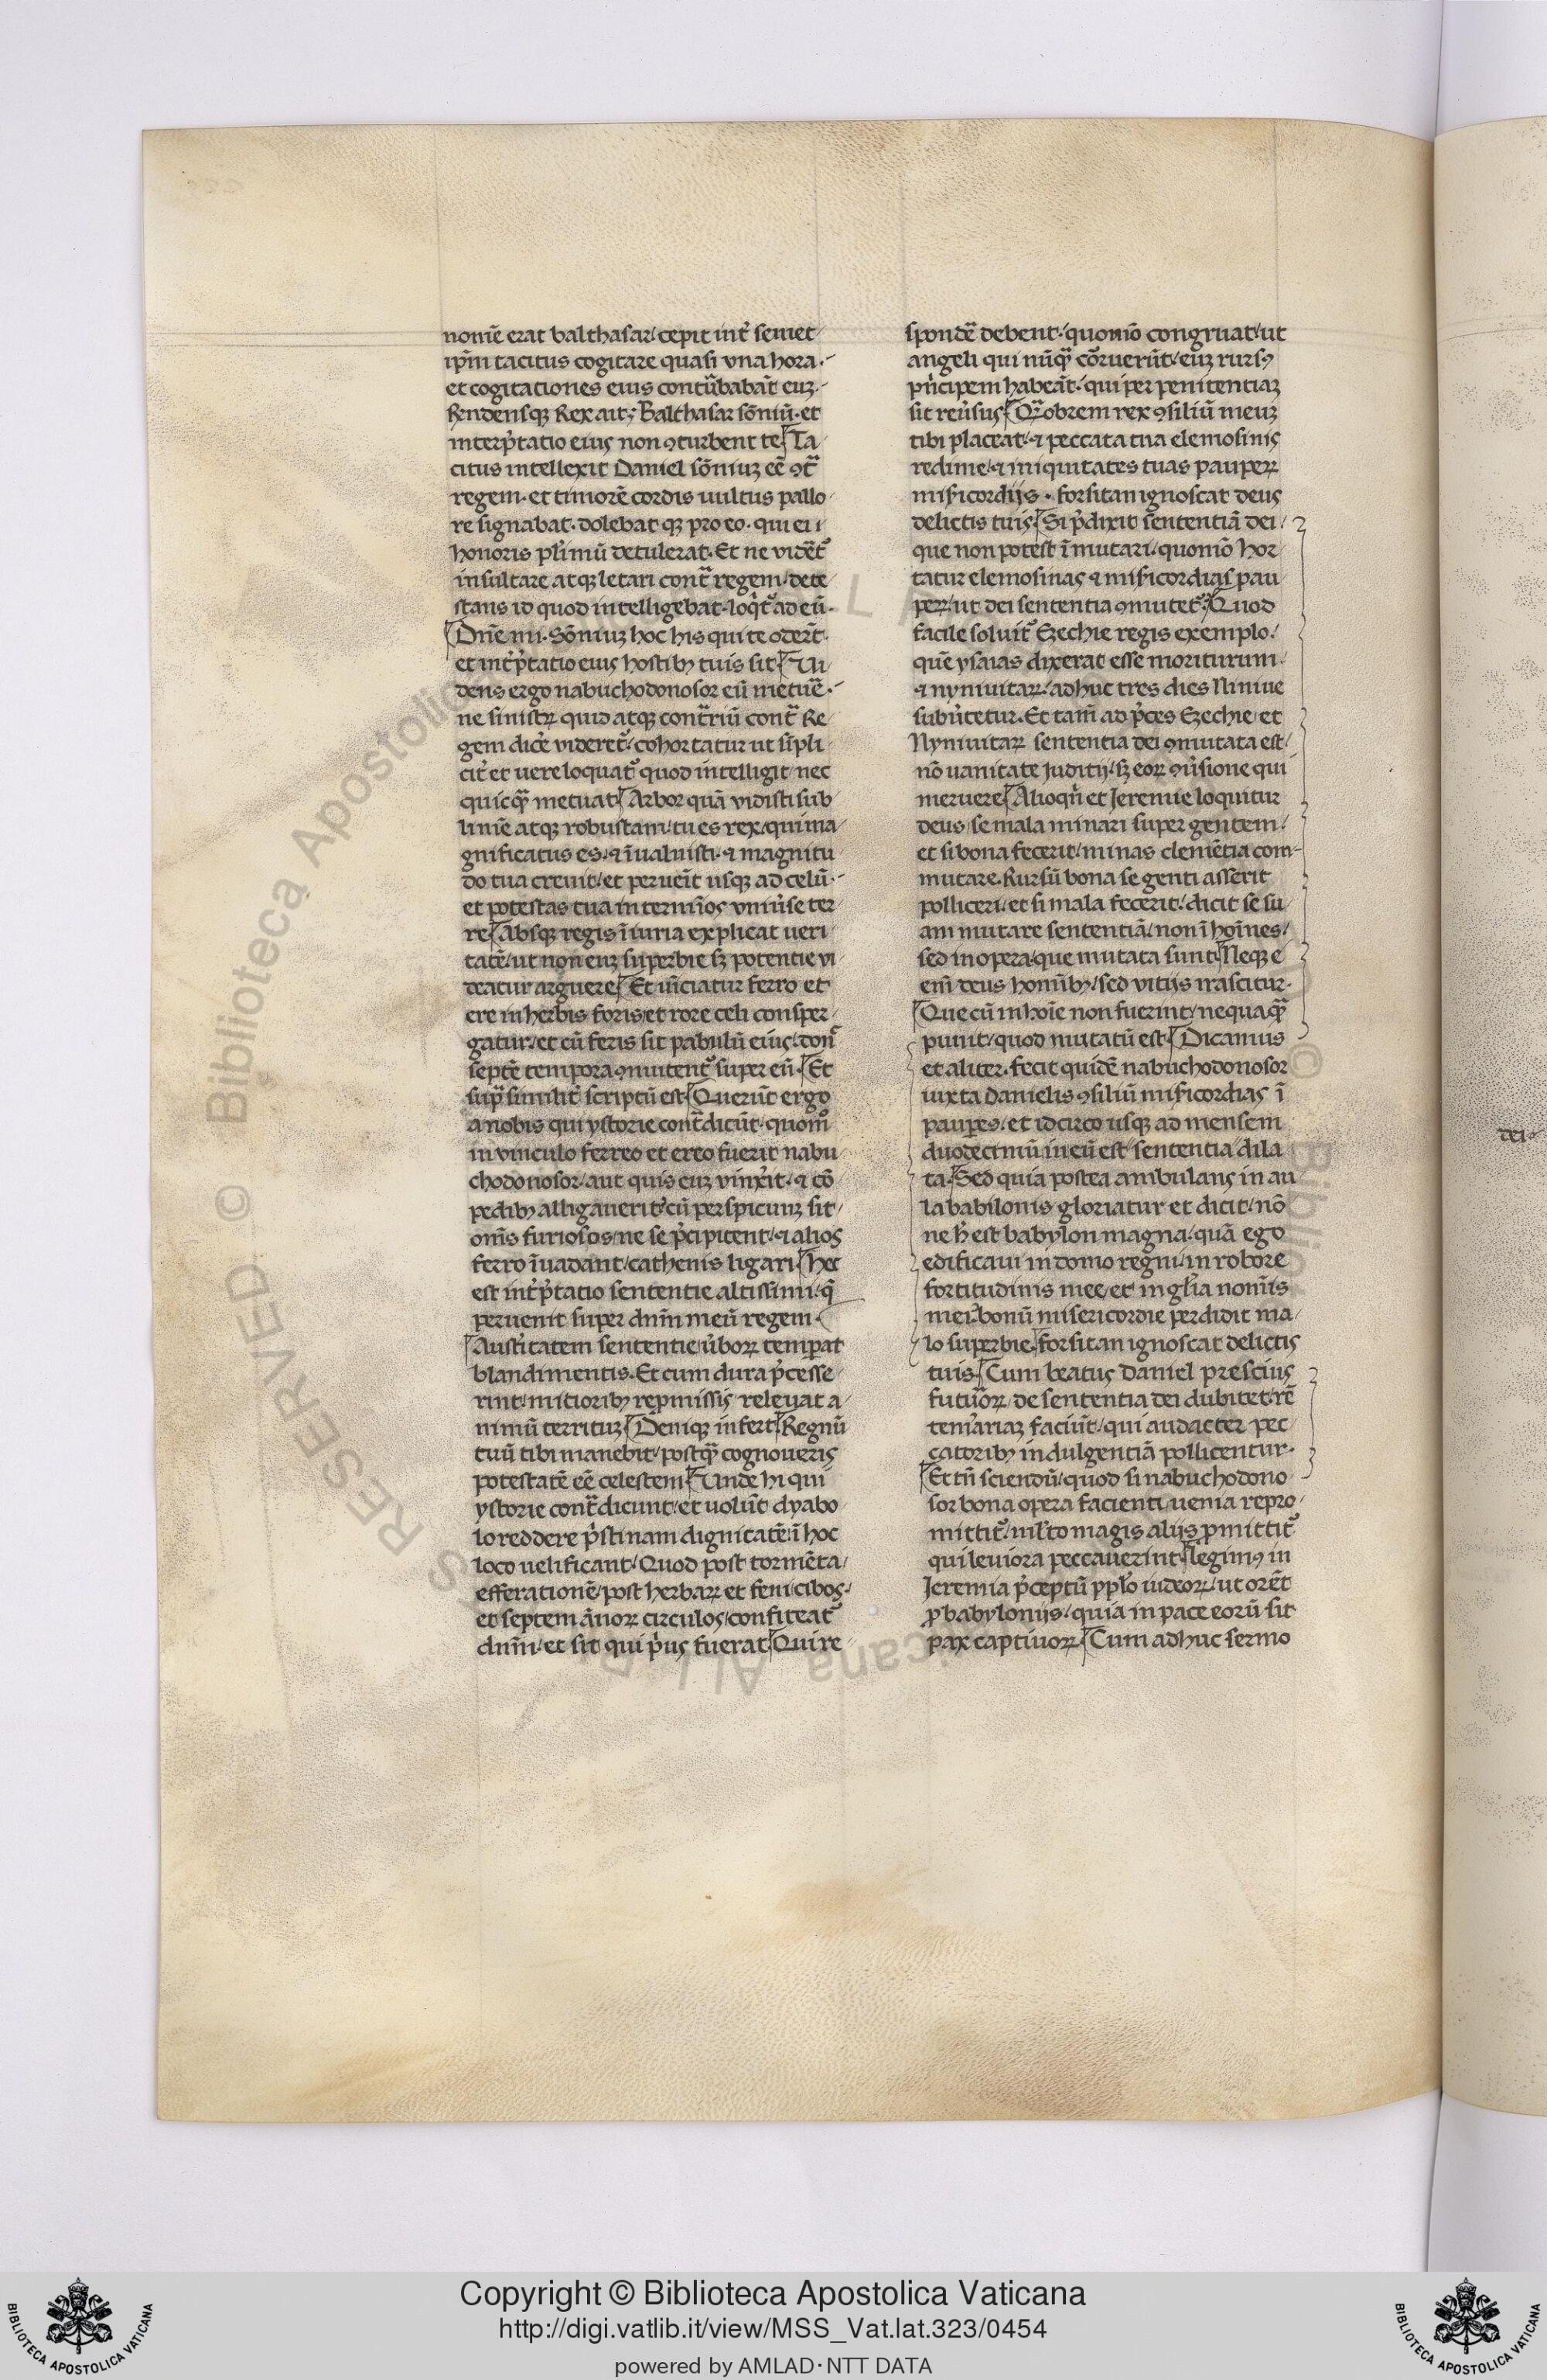 nomē erat balthasar/ cepit int᷑ semet/
ip̄m tacitus cogitare quasi vna hora./
et cogitationes eius contūbabāt euꝫ./
Rn̄densqꝫ Rex ait/ Balthasar sōniū. et
interp̄tatio eius non ꝯturbent te Ta/
citus intellexit Daniel sōniuꝫ eē ꝯt᷑
regem. et timorē cordis uultus pallo/
re signabat. dolebat qꝫ pro eo. qui ei ı
honoris pl̄imū detulerat. Et ne vidēt᷑
insultare atqꝫ letari cont᷑ regem/ dete/
stans id quod intelligebat. loqt᷑ ad eū.
Dn̄e mi. Sōniuꝫ hoc his qui te oderūt.
et int᷑p̄tatio eius hostibꝫ tuis sit Vi/
dens ergo nabuchodonosor eū metuē./
ne sinistꝝ quid atqꝫ cont᷑riū cont᷑ Re/
gem dice᷑ videret᷑/ cohortatur ut sīpli/
cit᷑ et uere loquat᷑ quod intelligit/ nec
quicqᷓ metuat Arbor quā vidisti sub
limē atqꝫ robustam/ tu es rex/ qui ma/
gnificatus es. ⁊ īualuisti. ⁊ magnitu
do tua creuit/ et peruēit usqꝫ ad celū./
et potestas tua in termīos vniu᷑se ter
re Absqꝫ regis īiuria explicat ueri
tatē/ ut non euꝫ superbie sꝫ potentie vi
deatur arguere Et uīciatur ferro et
ere in herbis foris/ et rore celi consper/
gatur/ et cū feris sit pabulū eius/ don᷑
septē tempora ꝯmutent᷑ super eū. Et
supᷓ similit᷑ scriptū est Querūt ergo
a nobis qui ystorie cont᷑dicūt. quom̊
in vinculo ferreo et ereo fuerit nabu
chodonosor/ aut quis euꝫ vinx᷑it. ⁊ cō
pedibꝫ alligauerit/ cū perspicuuꝫ sit/
om̄s furiosos/ ne se p̄cipitent/ ⁊ alios
ferro īuadant/ cathenis ligari Hec
est int᷑p̄tatio sententie altissimi/ q̄
peruenit super dnm̄ meū regem.
Aust᷑itatem sententie/ u᷑boꝝ temperat
blandimentis. Et cum dura p̄cesse/
rint/ mitioribꝫ repmissis releuat a/
nimū territuꝫ Deniqꝫ infert Regnū
tuū tibi manebit/ postqᷓ cognoueris
potestatē eē celestem Unde hi qui
ystorie cont᷑dicunt/ et uolūt dyabo
lo reddere p᷑stinam dignitatē/ ī hoc
loco uelificant/ Quod post tormēta/
efferationē/ post herbaꝝ et feni cibos/
et septem ānoꝝ circulos/ confiteat᷑
dnm̄/ et sit qui p᷑us fuerat Qui re/
spondē debent/ quomō congruat/ ut
angeli qui nūqᷓ cōruerūt/ euꝫ rursꝰ
p᷑ncipem habeāt/ qui per penitentiaꝫ
sit reu᷑sus Qᷓobrem rex ꝯsiliū meuꝫ
tibi placeat/ ⁊ peccata tua elemosinis
redime/ ⁊ iniquitates tuas pauperꝝ
misicordijs. forsitan ignoscat deus
delictis tuis Si p᷑dixit sententiā dei/
que non potest īmutari/ quomō hor
tatur elemosinas ⁊ misicordias pau
perꝝ/ ut dei sententia ꝯmutet᷑ Quod
facile soluit᷑ Ezechie regis exemplo/
quē ysaias dixerat esse moriturum/
⁊ nyniuitaꝝ/ adhuc tres dies Niniue
subu᷑tetur. Et tam̄ ad p᷑ces Ezechie/ et
Nyniuitaꝝ sententia dei ꝯmutata est/
nō uanitate Iuditij/ sꝫ eoꝝ ꝯu᷑sione qui
meruere Alioqn̄ et Jeremie loquitur
deus/ se mala minari super gentem/
et si bona fecerit/ minas clemētia com-
mutare. Rursū bona se genti asserit
polliceri/ et si mala fecerit/ dicit se su/
am mutare sententiā/ non ī hoīnes/
sed in opera/ que mutata sunt Neqꝫ e
em̄ deus hom̄ibꝫ/ sed vitijs irascitur.
Que cū in hoīe non fuerint/ nequaqᷓ
punit/ quod mutatū est Dicamus
et aliter. fecit quidē nabuchodonosor
iuxta Danielis ꝯsiliū misicordias ī
pauperes/ et idcirco usqꝫ ad mensem
duodecimū in eū est sententia dila
ta. Sed quia postea ambulans in au
la babilonis gloriatur et dicit/ nō
ne h᷑ est babylon magna/ quā ego
edificaui in domo regni/ in robore
fortitudinis mee/ et in gl᷑ia nom̄is
mei/ bonū misericordie perdidit ma/
lo superbie. forsitan ignoscat delictis
tuis Cum beatus Daniel prescius
futuꝝoꝝ/ de sententia dei dubitet/ rē
tem᷑ariaꝫ faciūt/ qui audacter pec/
catoribꝫ indulgentiā pollicentur.
Et tn̄ sciendū/ quod si nabuchodono
sor bona opera facienti/ uenia repro/
mittit᷑/ ml᷑to magis alijs ꝓmittit᷑
qui leuiora peccauerint Legimꝰ in
Jeremia p᷑ceptū ppl᷑o iudeoꝝ/ ut orēt
ꝓ babylonijs/ quia in pace eorū sit
pax captiuoꝝ Cum adhuc sermo
dei
Copyright © Biblioteca Apostolica Vaticana
http://digi.vatlib.it/view/MSS_Vat.lat.323/0454
powered by AMLAD·NTT DATA
BIBLIOTECA APOSTOLICA VATICANA
BIBLIOTECA APOSTOLICA VATICANA